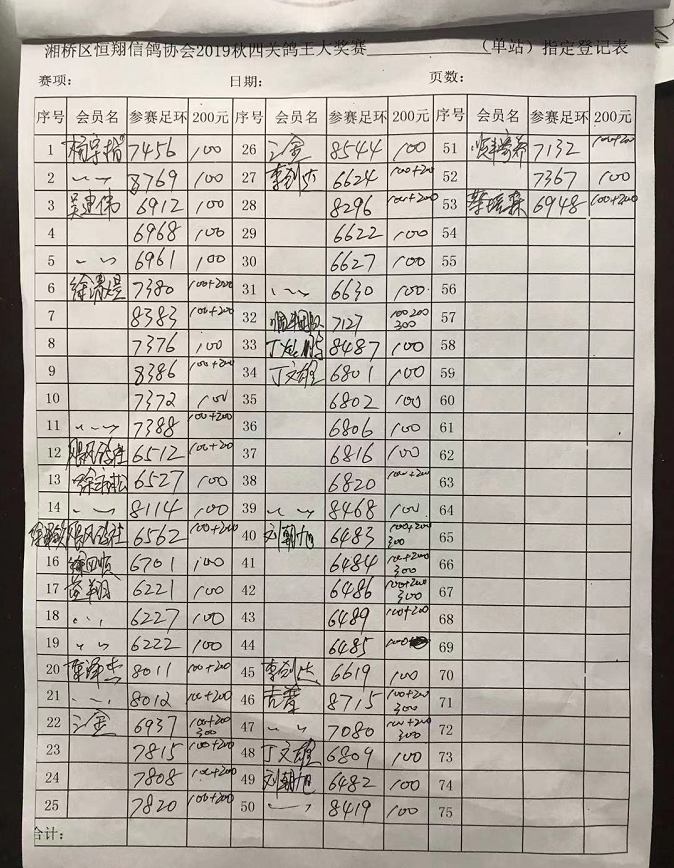 湘桥区恒翔信鸽协会2019秋四关鸽王大奖赛____________(单站)指定登记表
赛项: 日期: 页数:
序号 会员名 参赛足环 200元 序号 会员名 参赛足环 200元 序号 会员名 参赛足环 200元
1 7456 100 26 8544 100 51 7132 100+200
2 〃 8769 100 27 李剑杰 6624 100+200 52 7367 100
3 吴建伟 6912 100 28 8296 100+200 53 6948 100+200
4 6968 100 29 6622 100 54
5 〃 6961 100 30 6627 100 55
6 7380 100+200 31 〃 6630 100 56
7 8383 100+200 32 7127 100 200 300 57
8 7376 100 33 8487 100 58
9 8386 100+200 34 丁文雄 6801 100 59
10 7372 100 35 6802 100 60
11 〃 7388 100+200 36 6806 100 61
12 飓风鸽社 6512 100+200 37 6816 100 62
13 6527 100 38 6820 100+200 63
14 〃 8114 100 39 〃 8468 100 64
飓风鸽社 6562 100+200 40 刘朝旭 6483 100+200 300 65
16 6701 100 41 6484 100+200 300 66
17 6221 100 42 6486 100+200 300 67
18 〃 6227 100 43 6489 100+200 68
19 〃 6222 100 44 6485 69
20 陈泽杰 8011 100+200 45 李剑杰 6619 100 70
21 〃 8012 100+200 46 8715 100+200 300 71
22 6937 100+200 300 47 〃 7080 100+200 300 72
23 7815 100+200 48 丁文雄 6809 100 73
24 7808 100+200 49 刘朝旭 6482 100 74
25 7820 100+200 50 〃 8419 100 75
合计: